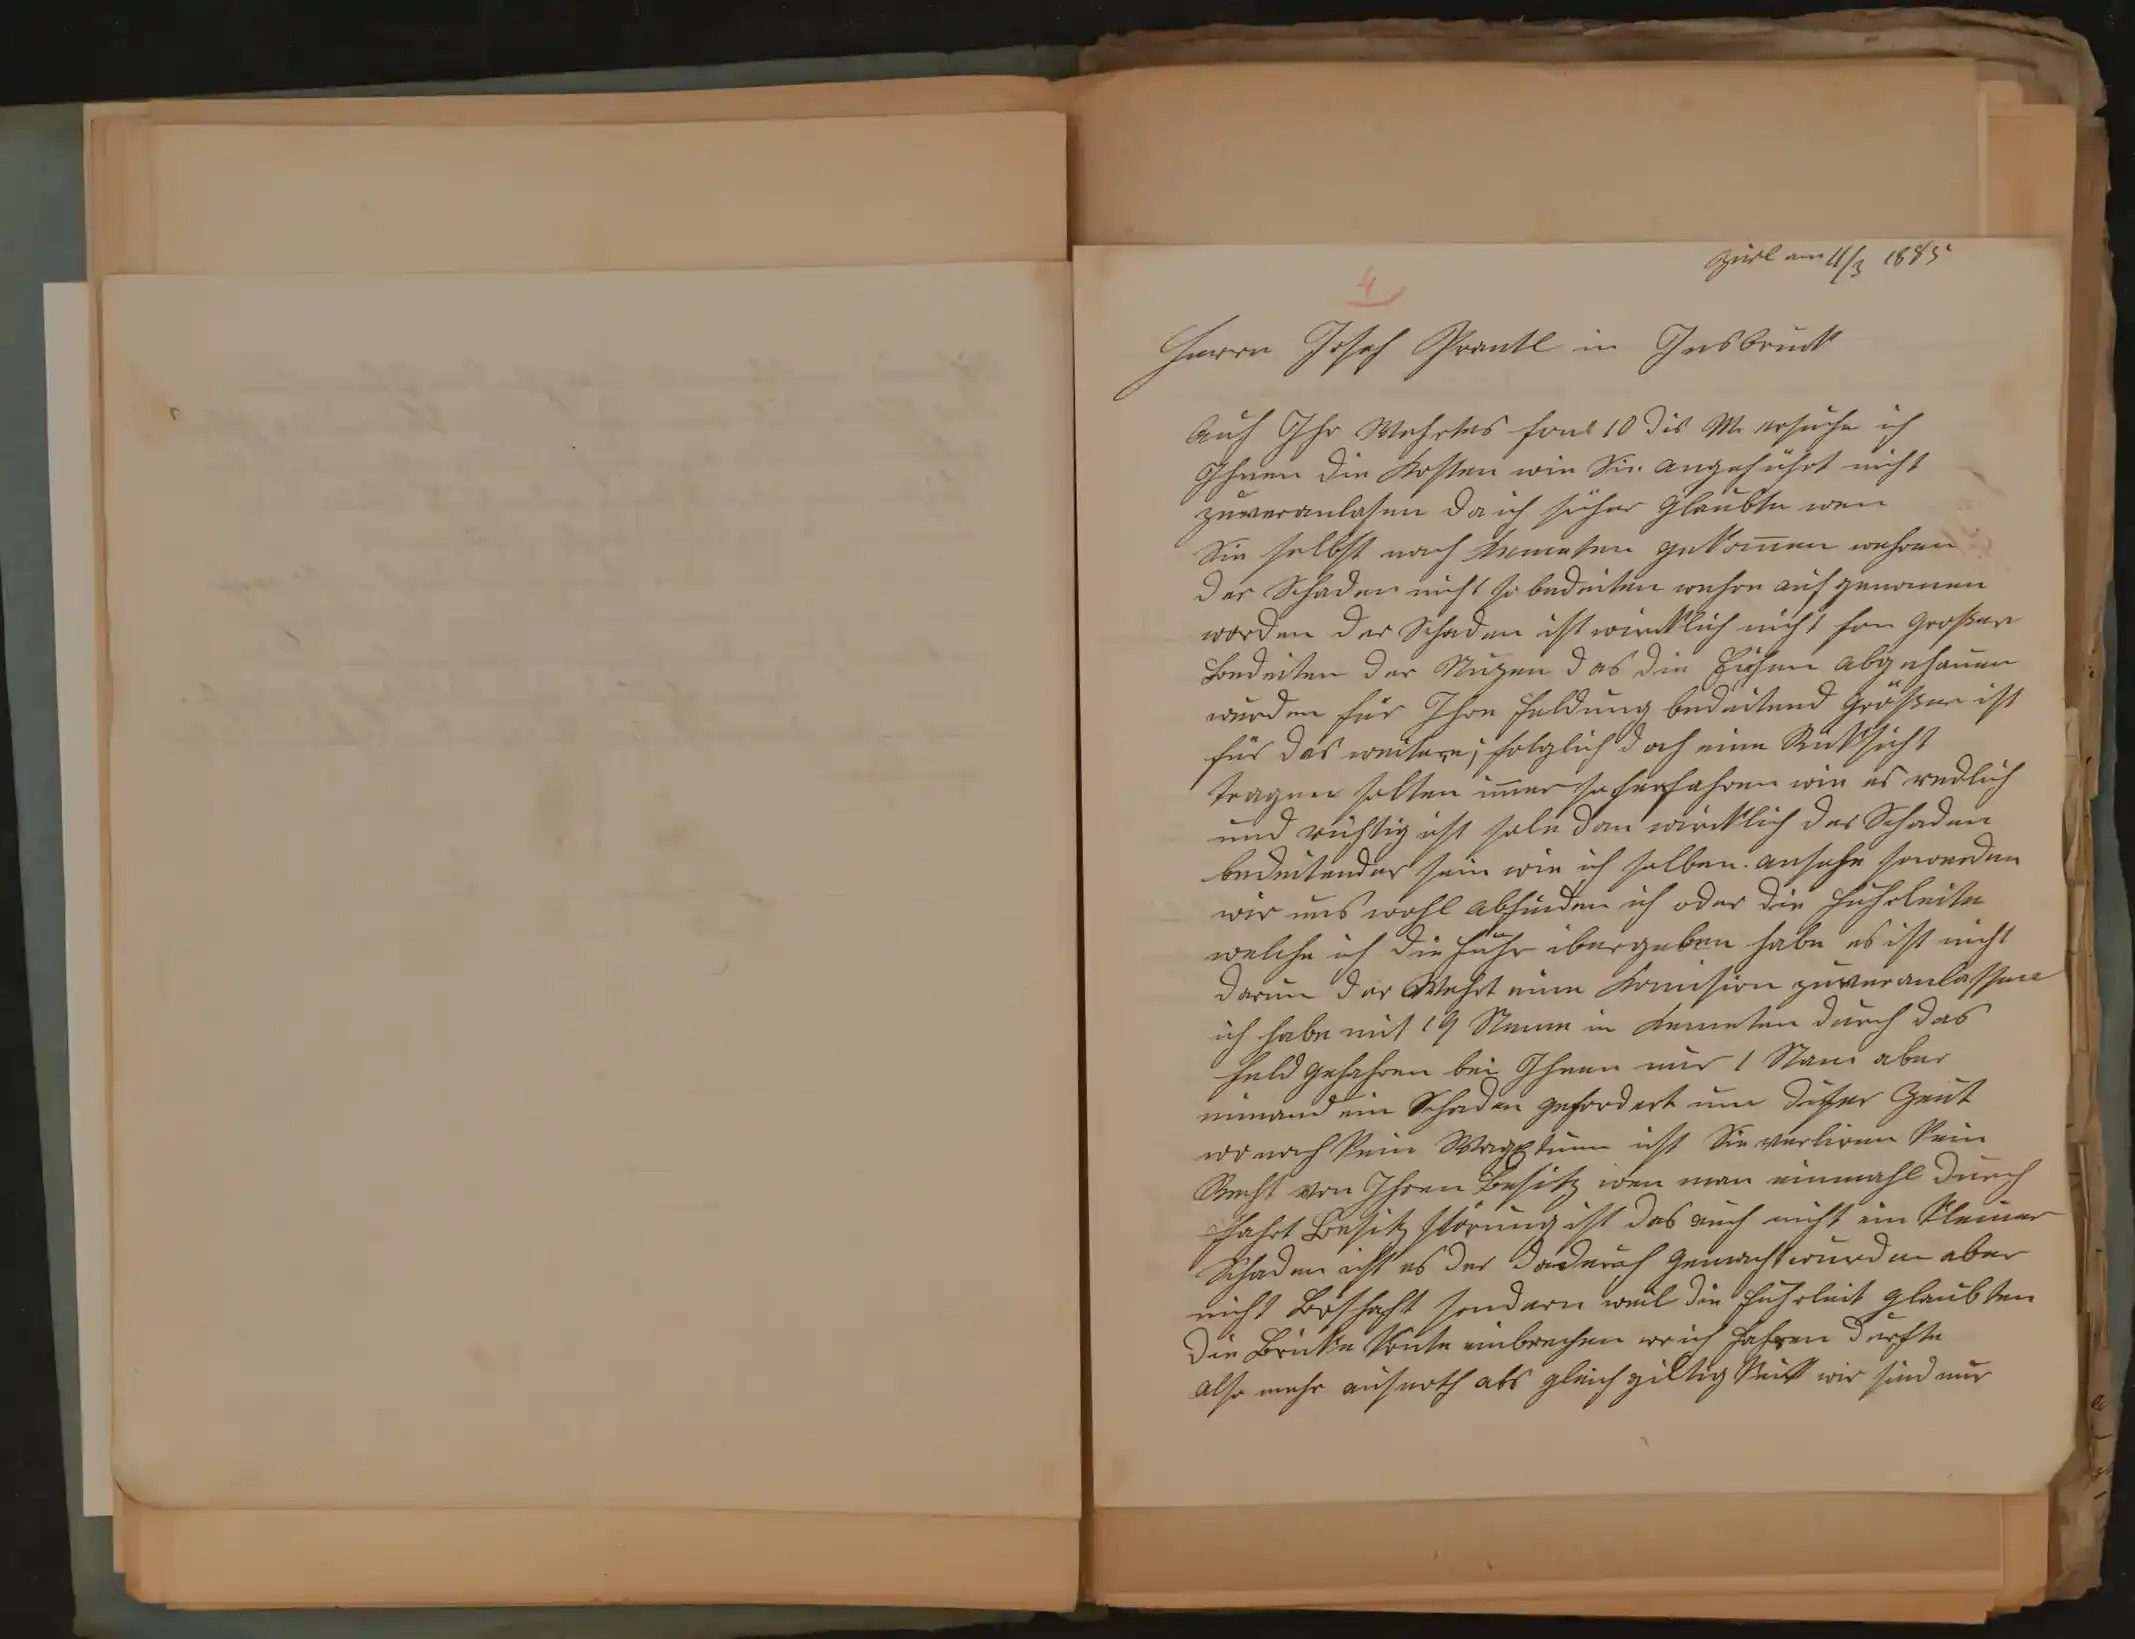 Zirl am 11/3 1885
4
Herrn Josef Prantl in Insbruck
Auf Ihr Wehrtes fom 10 dis M. ersuche ich
Ihnen die Kosten wie Sie angeführt nicht
zuveranlasen da ich sicher glaubte wen
Sie selbst nach Kematen gekomen wehren
der Schaden nicht so bedeiten wehre aufgenomen
worden der Schaden ist wircklich nicht fon großer
Bedeiten der Nuzen das die abgehauen
wurden für Ihre Feldung bedeitend größer ist
für das weitere, folglich doch eine Rüksicht
tragen solten imer so ferfahren wie es redlich
und richtig ist sole dan wircklich der Schaden
bedeitender sein wie ich selben ansehe so werden
wir uns wohl abfinden ich oder die Fuhrleite
welche ich die Fuhr ibergeben habe es ist nicht
darum der Wehrt eine Komision zuveranlassen
ich habe mit 19 Stame in Kematen durch das
Feld gefahren bei Ihnen nur 1 Stam aber
nimand ein Schaden gefordert um diser Zeut
wo noch kein ist Sie verliren kein
Recht von Ihren Besitz wen man einmahl durch
fahrt Besitz störung ist das auch nicht ein kleiner
Schaden ist es der dadurch gemacht wurden aber
nicht Boshaft sondern weil die Fuhrleit glaubten
die Brüke könte einbrechen wo ich fahren durfte
also mehr aus noth als gleichgiltigkeit wir sind nur